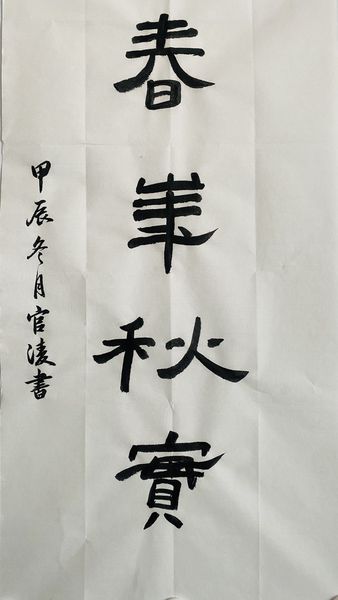 春華秋實
甲辰冬月官淩書